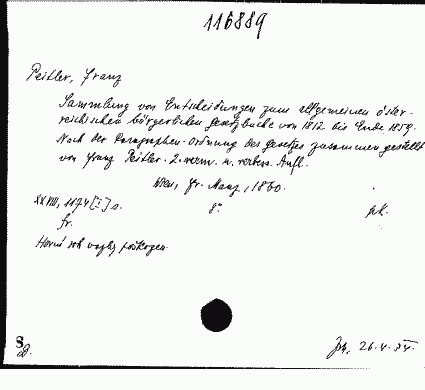 116889
Peitler, Franz
Sammlung von Entscheidungen zum allgemeinen öster-
reichischen bürgerlichen Gesetzbuche von 1812 bis Ende 1859.
Nach der Paragraphen-Ordnung des Gesetzes zusammengestellt
von Franz Peitler. 2. verm. u. verbess. Aufl.
Wien, Fr. Manz, 1860.
XXVIII, 1174 [1] s. 8° pk.
fr.
Horní roh vazby poškozen
S
26.4.